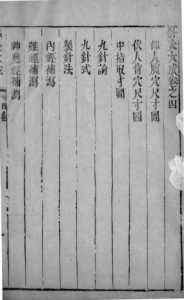 鍼灸大成卷之四
仰人腹穴尺寸圖
伏人背穴尺寸圖
中指取寸圖
九針論
九針式
製針法
內經補瀉
難經補瀉
神應經補瀉
四卷